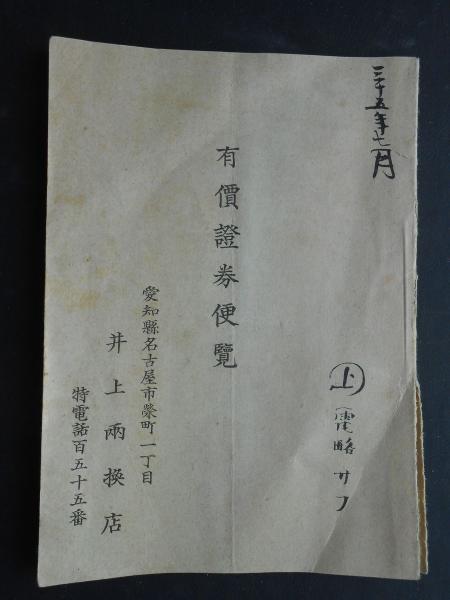 三十五年七月
上
電略 サフ
有價證券便覽
愛知縣名古屋市榮町一丁目
井上兩換店
特電話百五十五番